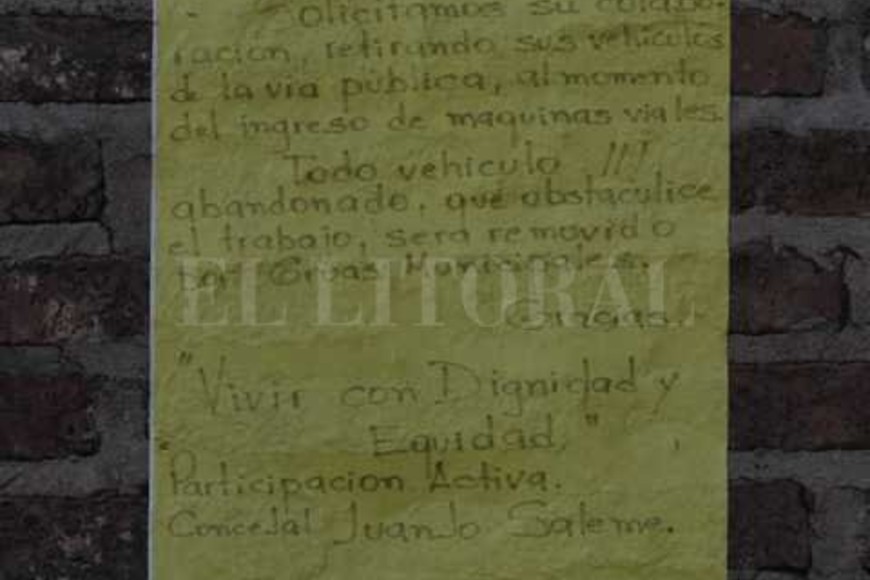 - Solicitamos su colabo-
racion, retirando sus vehiculos
de la via publica, al momento
del ingreso de maquinas viales.
Todo vehiculo !!!
abandonado, que obstaculice
el trabajo, sera removido
por Gruas Municipales.
EL LITORAL
Gracias.
"Vivir con Dignidad y
Equidad."
Participacion Activa.
Concejal Juanjo Saleme.